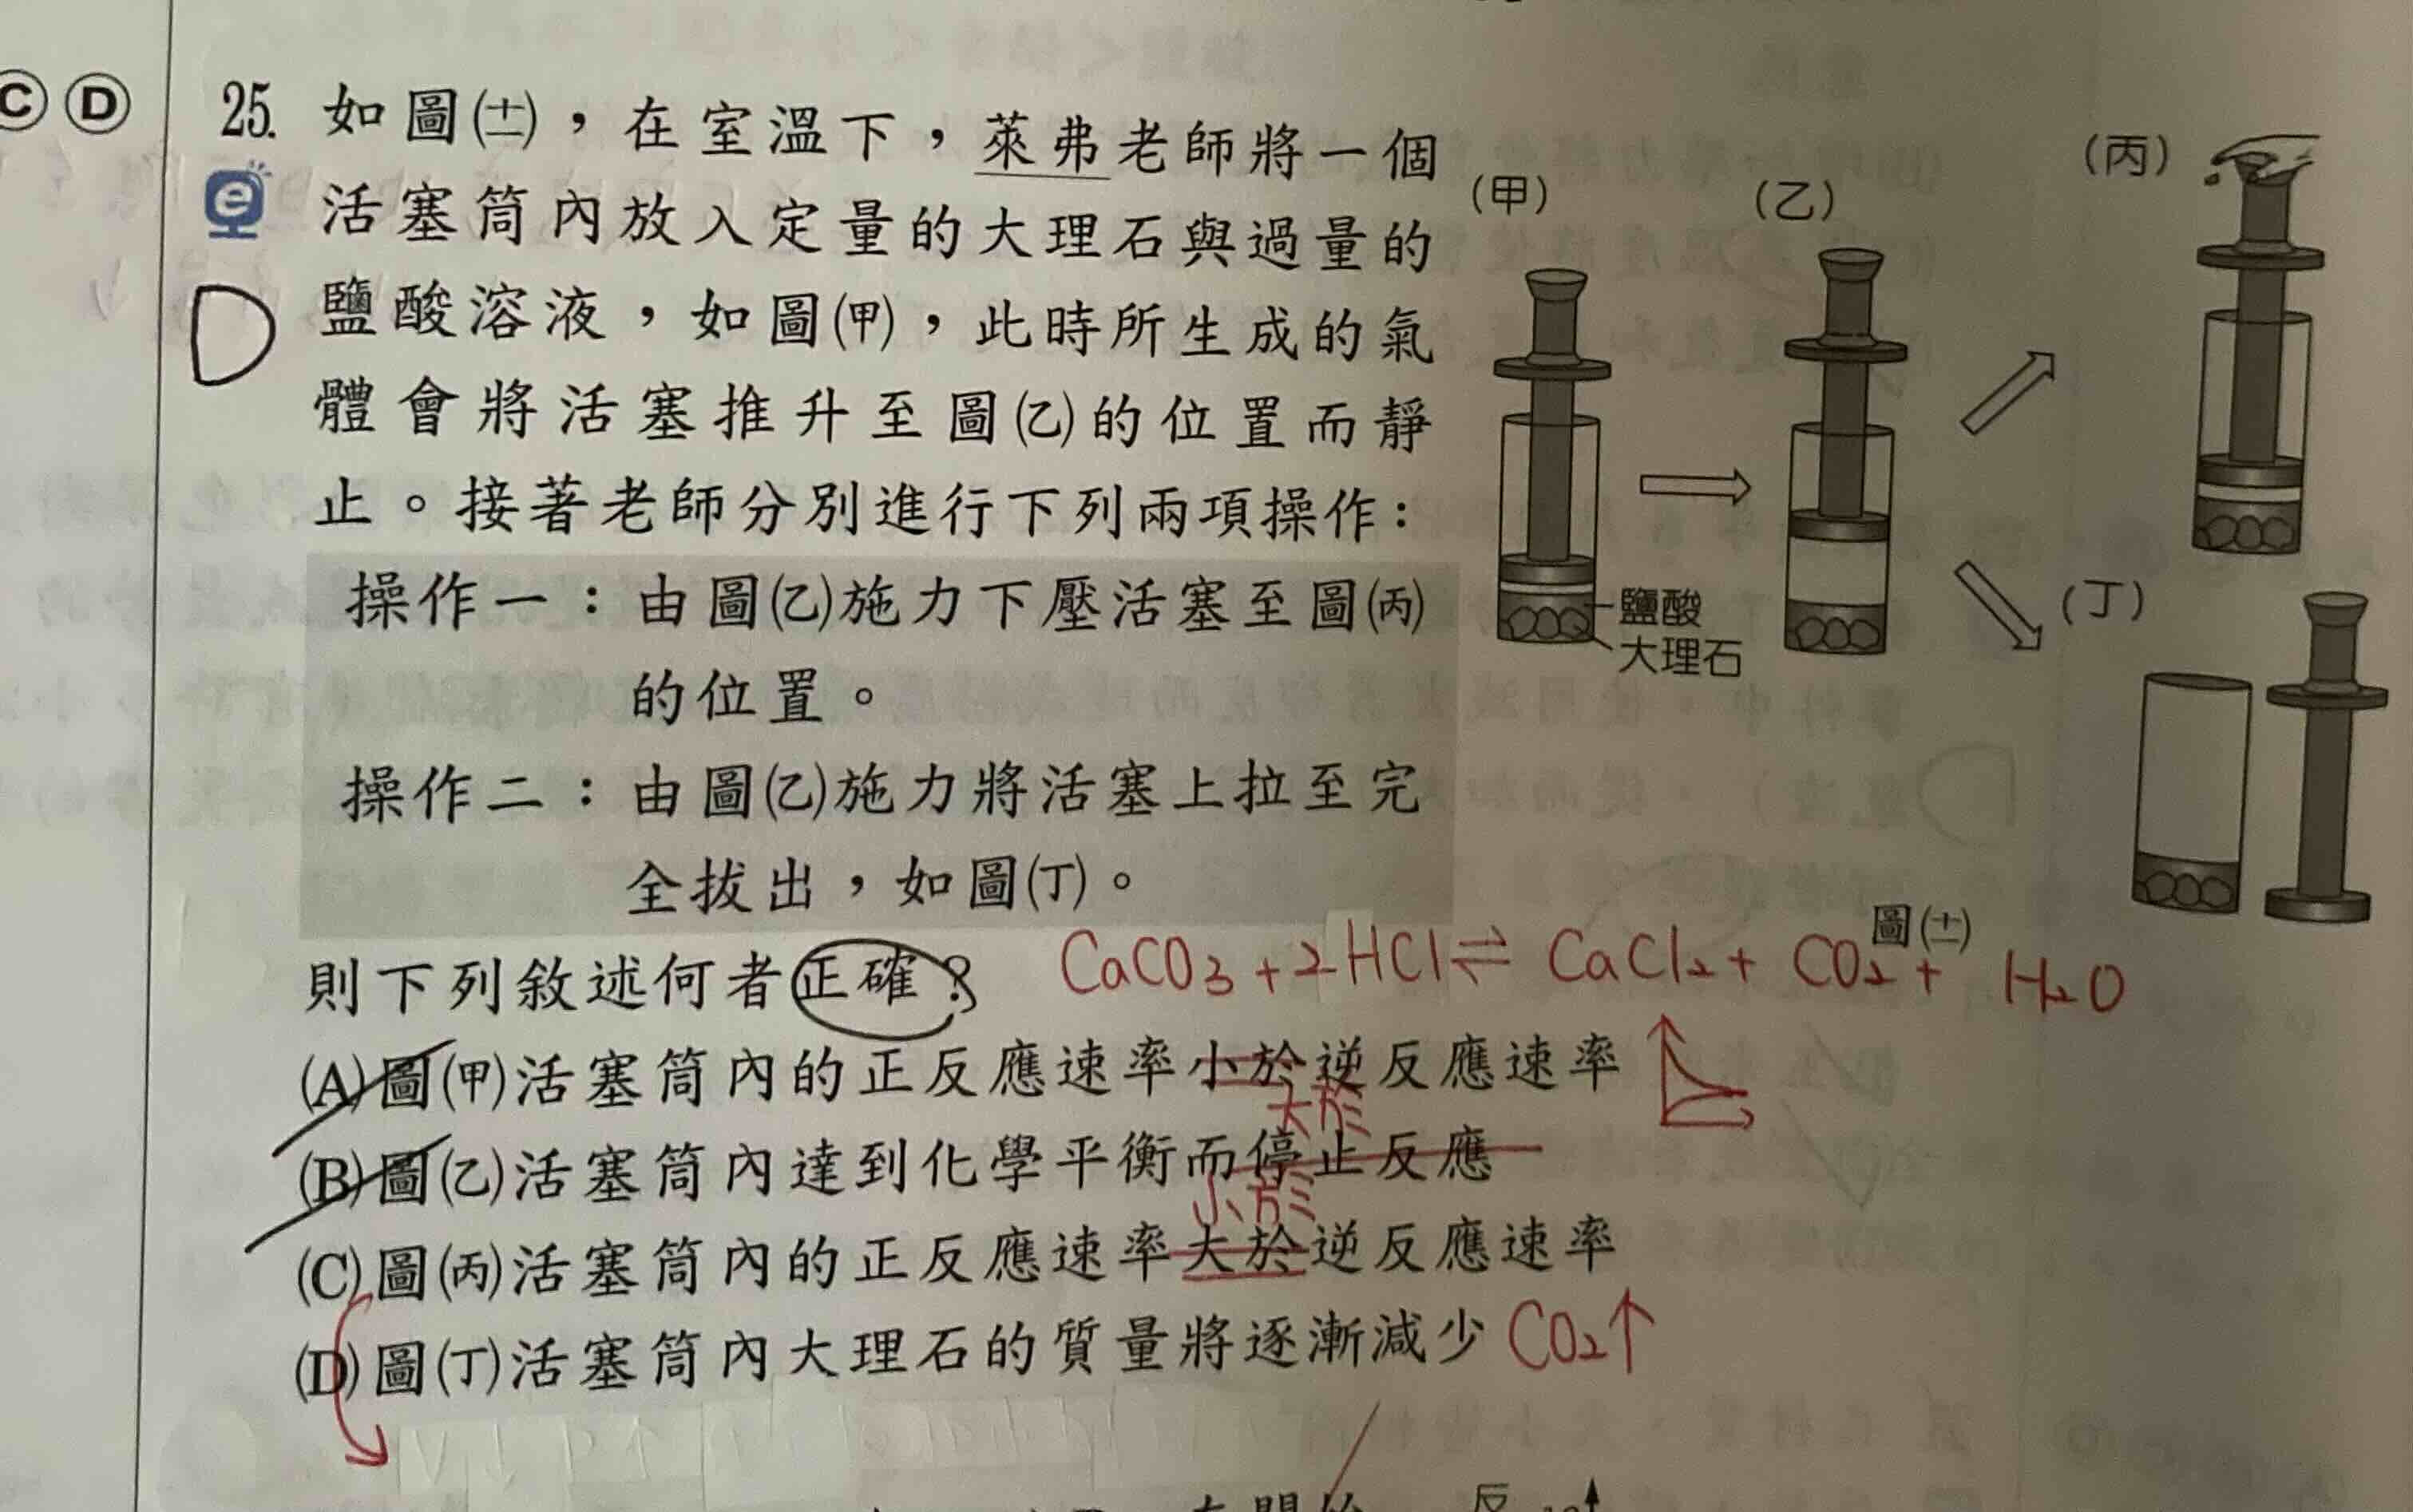 C D
25. 如圖(十二)，在室溫下，萊弗老師將一個
活塞筒內放入定量的大理石與過量的
D
鹽酸溶液，如圖(甲)，此時所生成的氣
體會將活塞推升至圖(乙)的位置而靜
止。接著老師分別進行下列兩項操作：
操作一：由圖(乙)施力下壓活塞至圖(丙)
的位置。
操作二：由圖(乙)施力將活塞上拉至完
全拔出，如圖(丁)。
(甲)
(乙)
(丙)
鹽酸
大理石
(丁)
圖(十二)
則下列敘述何者正確？
CaCO₃ + 2HCl ⇌ CaCl₂ + CO₂ + H₂O
(A)圖(甲)活塞筒內的正反應速率小於逆反應速率
大於
(B)圖(乙)活塞筒內達到化學平衡而停止反應
小於
(C)圖(丙)活塞筒內的正反應速率大於逆反應速率
(D)圖(丁)活塞筒內大理石的質量將逐漸減少 CO₂↑